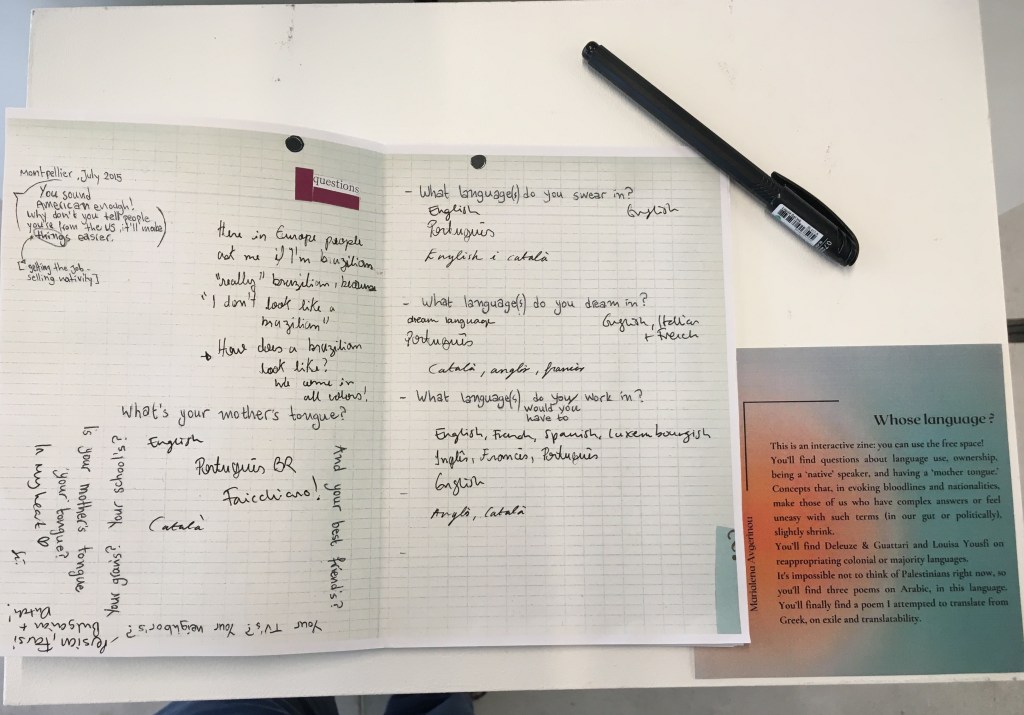 Montpellier, July 2015
You sound
American enough!
Why don't you tell people
you're from the US, it'll make
things easier.
[getting the job -
selling nativity]
questions
Here in Europe people
ask me if I'm brazilian
"really" brazilian, because
"I don't look like a
brazilian"
How does a brazilian
look like?
We come in
all colors!
What's your mother's tongue?
English
Português BR
Faicchiano!
Català
And your best friend's?
Your TV's? Your neighbor's?
Your gran's? Your school's?
Is your mother's tongue
your tongue?
In my heart
Sí.
Persian, Farsi
Bulgarian +
Dutch!
- What language(s) do you swear in?
English
English
Português
English i català
- What language(s) do you dream in?
dream language
English, Italian
+ French
Português
Català, anglès, francès
- What language(s) do you work in?
would you
have to
English, French, Spanish, Luxembourgish
Inglês, Francês, Português
English
-
Anglès, Català
-
Whose language ?
This is an interactive zine: you can use the free space!
You'll find questions about language use, ownership,
being a 'native' speaker, and having a 'mother tongue.'
Concepts that, in evoking bloodlines and nationalities,
make those of us who have complex answers or feel
uneasy with such terms (in our gut or politically),
slightly shrink.
You'll find Deleuze & Guattari and Louisa Yousfi on
reappropriating colonial or majority languages.
It's impossible not to think of Palestinians right now, so
you'll find three poems on Arabic, in this language.
You'll finally find a poem I attempted to translate from
Greek, on exile and translatability.
Marialena Avgerinou